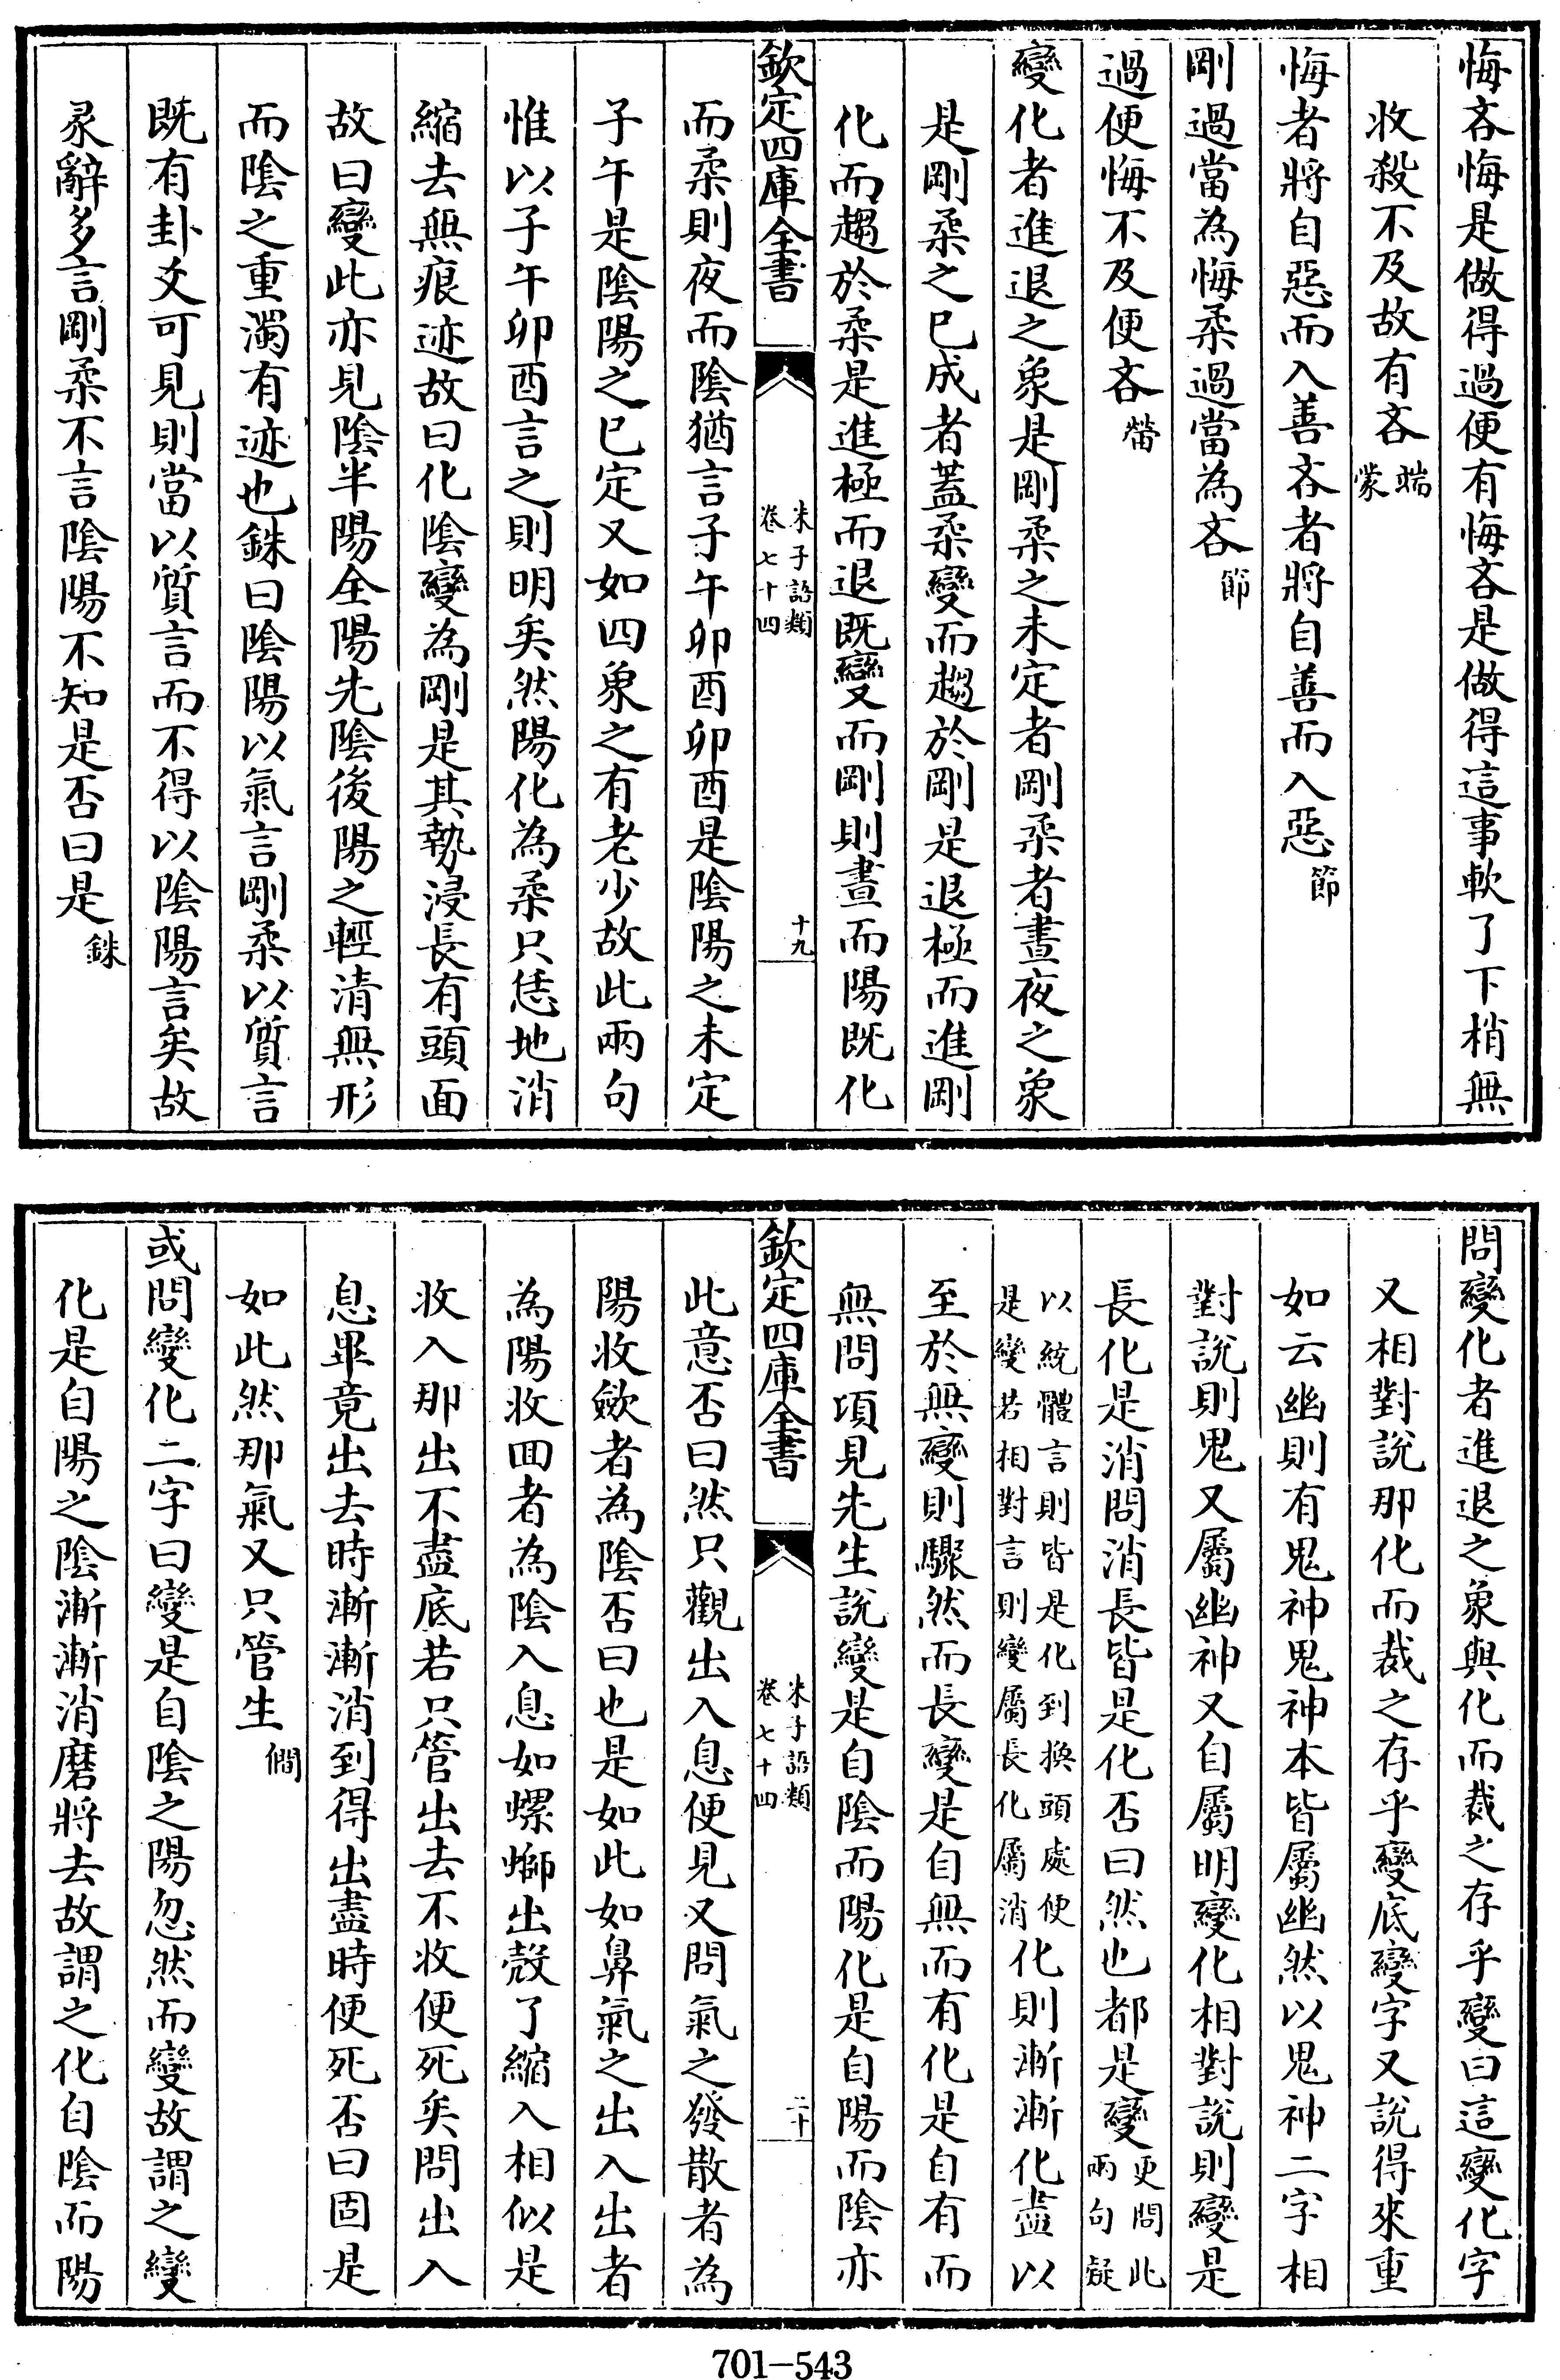 悔吝悔是做得過便有悔吝是做得這事軟了下梢無
收殺不及故有吝端蒙
悔者將自惡而入善吝者將自善而入惡節
剛過當為悔柔過當為吝節
過便悔不及便吝㽦
變化者進退之象是剛柔之未定者剛柔者晝夜之象
是剛柔之已成者蓋柔變而趨於剛是退極而進剛
化而趨於柔是進極而退既變而剛則晝而陽既化
欽定四庫全書
朱子語類
卷七十四
十九
而柔則夜而陰猶言子午卯酉卯酉是陰陽之未定
子午是陰陽之已定又如四象之有老少故此兩句
惟以子午卯酉言之則明矣然陽化為柔只恁地消
縮去無痕迹故曰化陰變為剛是其勢浸長有頭面
故曰變此亦見陰半陽全陽先陰後陽之輕清無形
而陰之重濁有迹也銖曰陰陽以氣言剛柔以質言
既有卦爻可見則當以質言而不得以陰陽言矣故
彖辭多言剛柔不言陰陽不知是否曰是銖
問變化者進退之象與化而裁之存乎變曰這變化字
又相對說那化而裁之存乎變底變字又說得來重
如云幽則有鬼神鬼神本皆屬幽然以鬼神二字相
對說則鬼又屬幽神又自屬明變化相對說則變是
長化是消問消長皆是化否曰然也都是變更問此兩句疑
以統體言則皆是化到換頭處便是變若相對言則變屬長化屬消化則漸漸化盡以
至於無變則驟然而長變是自無而有化是自有而
無問頃見先生說變是自陰而陽化是自陽而陰亦
欽定四庫全書
朱子語類
卷七十四
二十
此意否曰然只觀出入息便見又問氣之發散者為
陽收斂者為陰否曰也是如此如鼻氣之出入出者
為陽收回者為陰入息如螺螄出殼了縮入相似是
收入那出不盡底若只管出去不收便死矣問出入
息畢竟出去時漸漸消到得出盡時便死否曰固是
如此然那氣又只管生僩
或問變化二字曰變是自陰之陽忽然而變故謂之變
化是自陽之陰漸漸消磨將去故謂之化自陰而陽
701-543